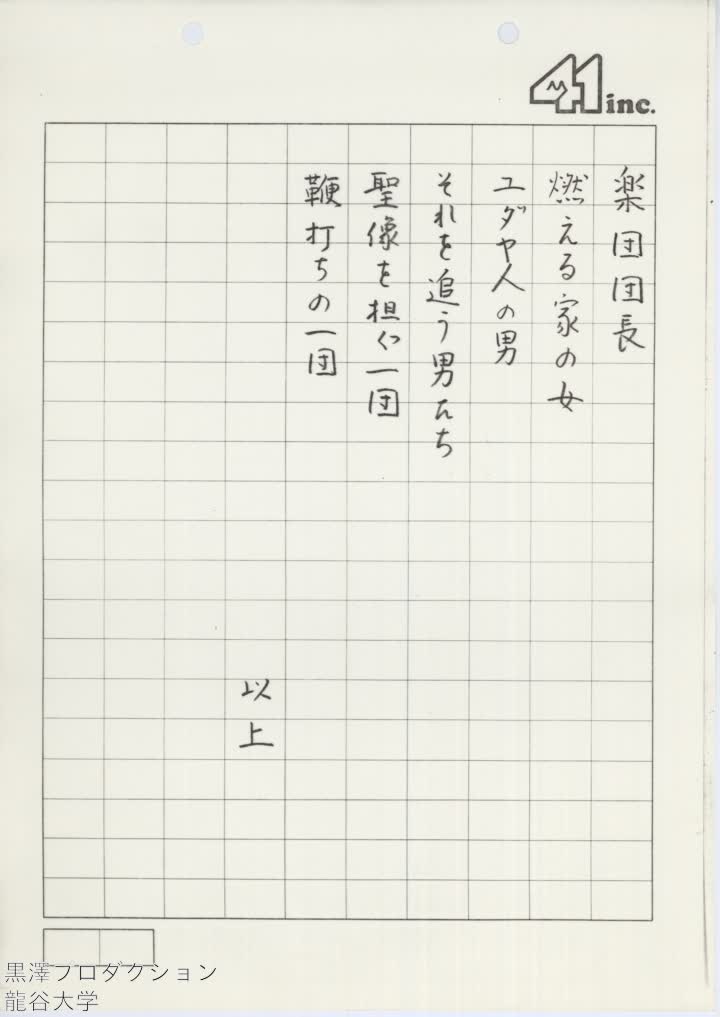 41 inc.
楽団団長
燃える家の女
ユダヤ人の男
それを追う男たち
聖像を担ぐ一団
鞭打ちの一団
以上
黒澤プロダクション
龍谷大学